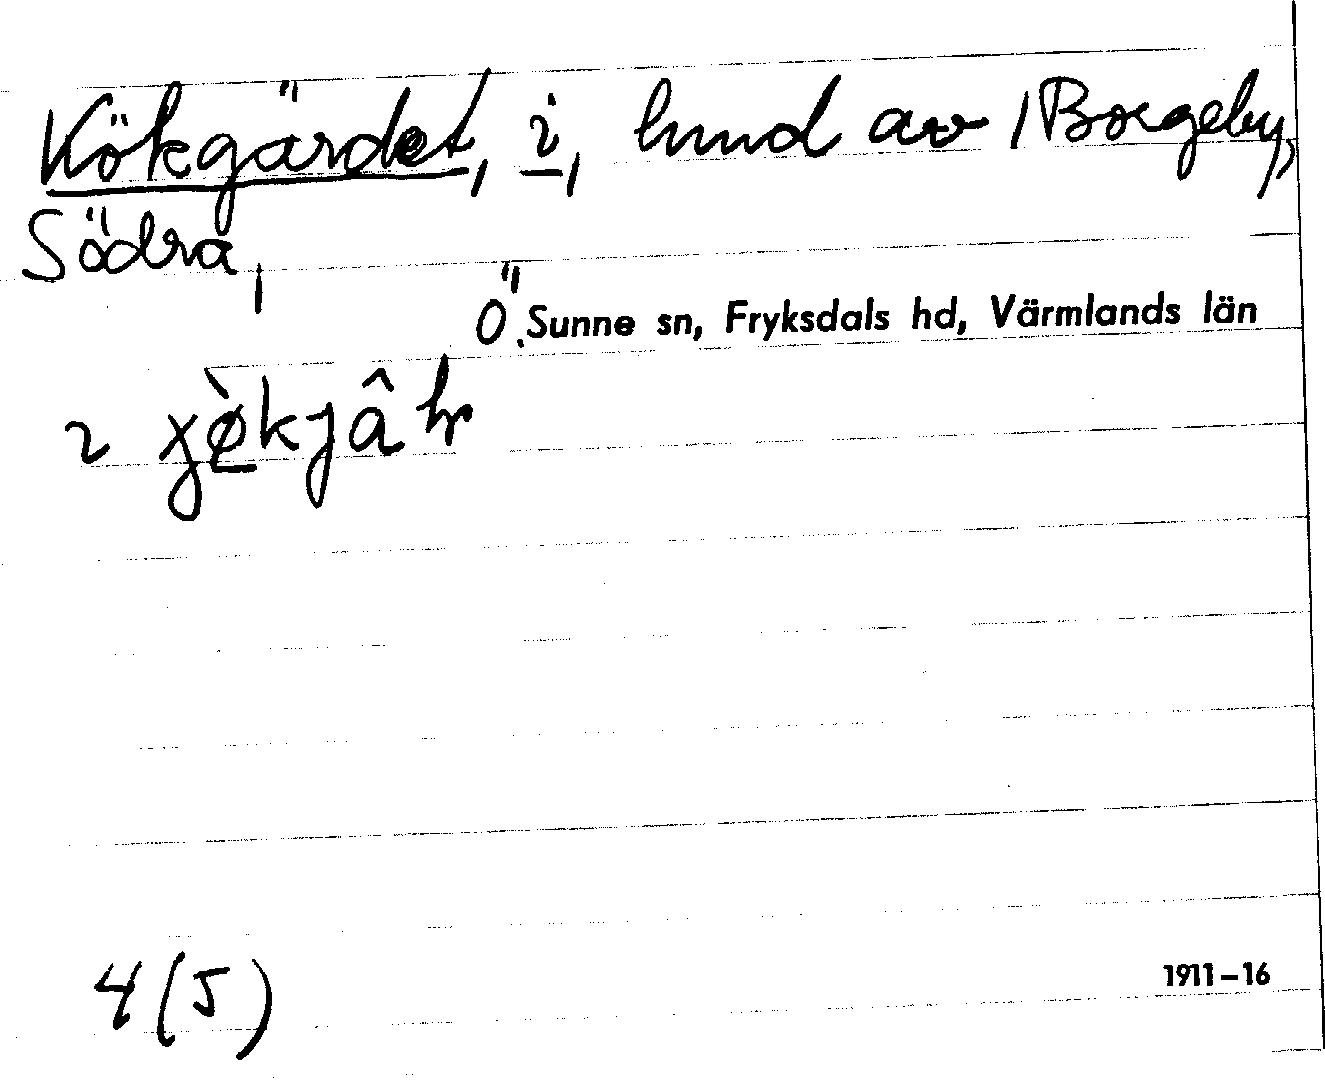 Kökgärdet, i, hmd av /Borgeby,
Södra,
Ö. Sunne sn, Fryksdals hd, Värmlands län
4 (5)
1911–16